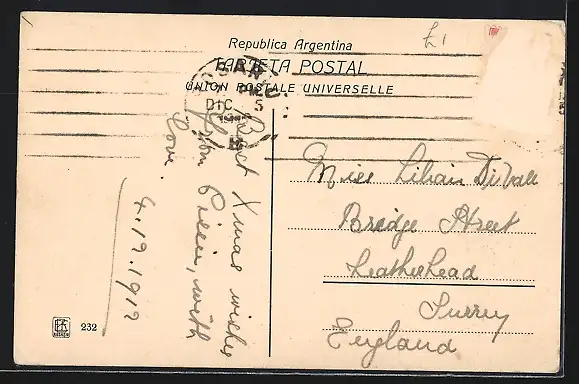 Republica Argentina
£1
TARJETA POSTAL
UNION POSTALE UNIVERSELLE
DIC 5
Best Xmas wishes
from Cissie, with
love.
4.12.1912
Miss Lilian DiVall
Bridge Street
Leatherhead
Surrey
England
232